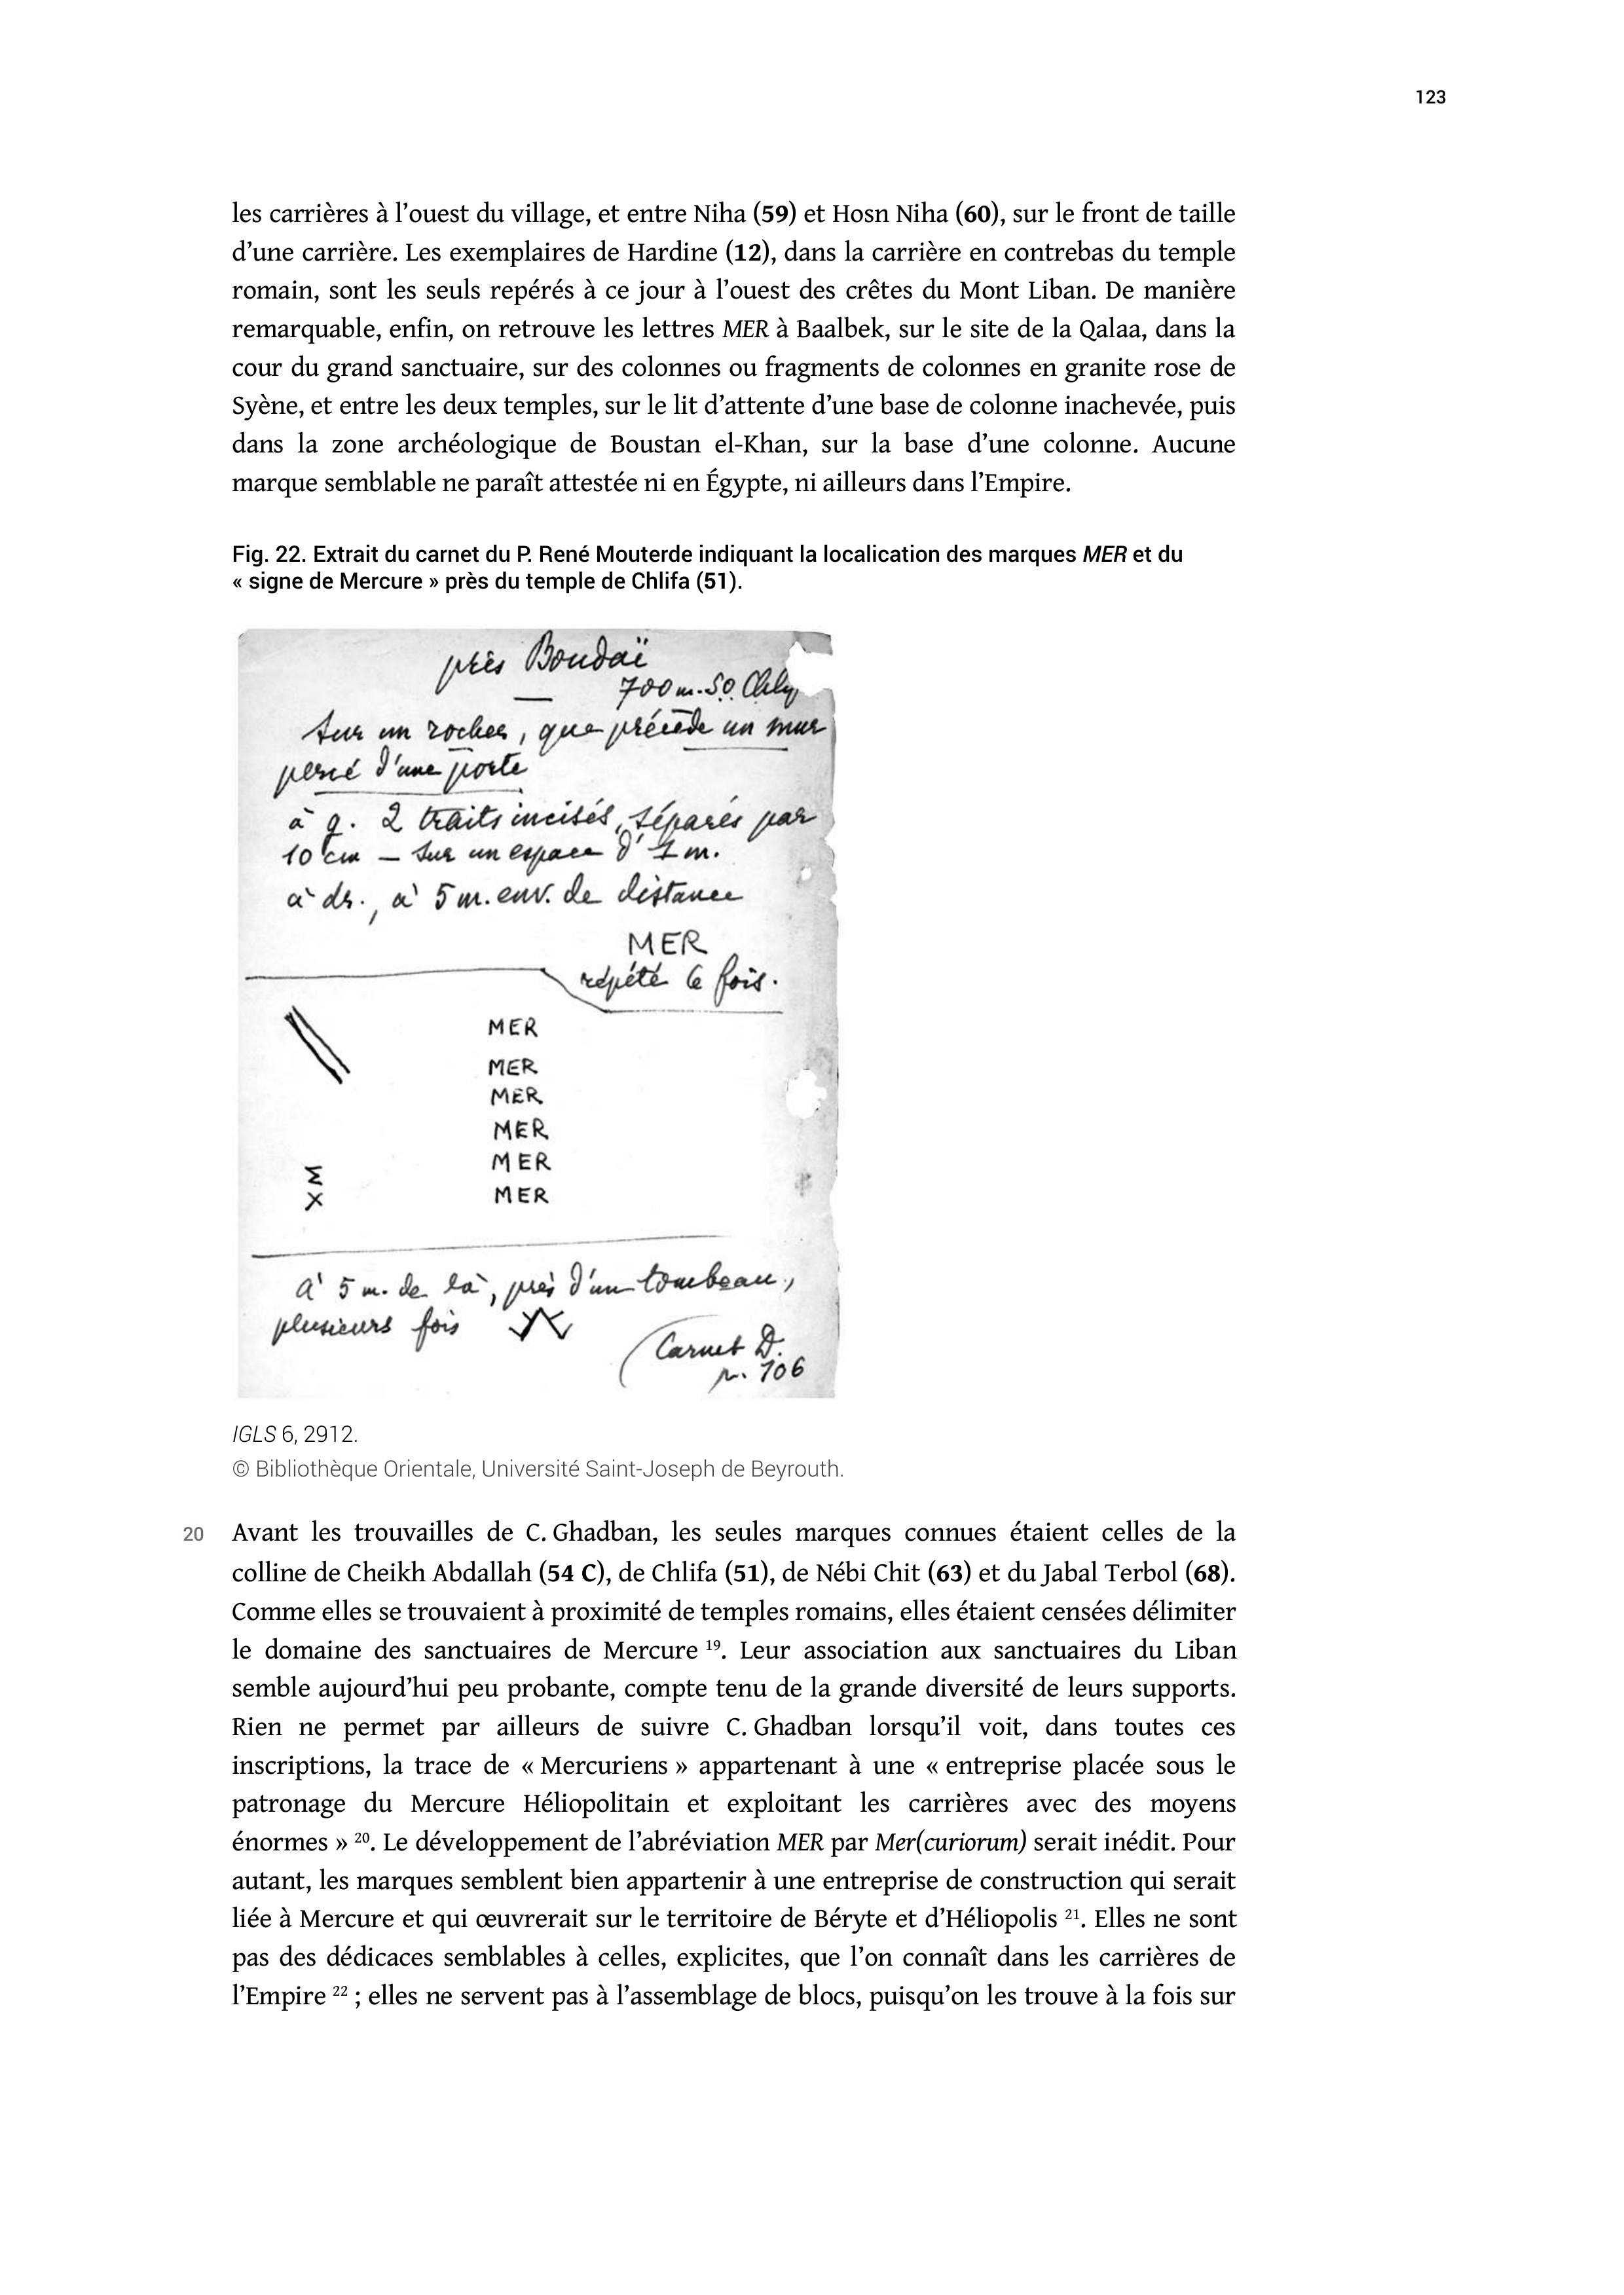 123
les carrières à l’ouest du village, et entre Niha (59) et Hosn Niha (60), sur le front de taille
d’une carrière. Les exemplaires de Hardine (12), dans la carrière en contrebas du temple
romain, sont les seuls repérés à ce jour à l’ouest des crêtes du Mont Liban. De manière
remarquable, enfin, on retrouve les lettres MER à Baalbek, sur le site de la Qalaa, dans la
cour du grand sanctuaire, sur des colonnes ou fragments de colonnes en granite rose de
Syène, et entre les deux temples, sur le lit d’attente d’une base de colonne inachevée, puis
dans la zone archéologique de Boustan el-Khan, sur la base d’une colonne. Aucune
marque semblable ne paraît attestée ni en Égypte, ni ailleurs dans l’Empire.
Fig. 22. Extrait du carnet du P. René Mouterde indiquant la localication des marques MER et du
« signe de Mercure » près du temple de Chlifa (51).
près Boudaï
700 m. SO
sur un rocher, que précède un mur
percé d'une porte
à g. 2 traits incisés, séparés par
10 cm – sur un espace d'1 m.
à dr., à 5 m. env. de distance
MER
répété 6 fois.
MER
MER
MER
MER
MER
MER
Σ
X
A 5 m. de là, près d'un tombeau,
plusieurs fois
Carnet D.
p. 106
IGLS 6, 2912.
© Bibliothèque Orientale, Université Saint-Joseph de Beyrouth.
20 Avant les trouvailles de C. Ghadban, les seules marques connues étaient celles de la
colline de Cheikh Abdallah (54 C), de Chlifa (51), de Nébi Chit (63) et du Jabal Terbol (68).
Comme elles se trouvaient à proximité de temples romains, elles étaient censées délimiter
le domaine des sanctuaires de Mercure 19. Leur association aux sanctuaires du Liban
semble aujourd’hui peu probante, compte tenu de la grande diversité de leurs supports.
Rien ne permet par ailleurs de suivre C. Ghadban lorsqu’il voit, dans toutes ces
inscriptions, la trace de « Mercuriens » appartenant à une « entreprise placée sous le
patronage du Mercure Héliopolitain et exploitant les carrières avec des moyens
énormes » 20. Le développement de l’abréviation MER par Mer(curiorum) serait inédit. Pour
autant, les marques semblent bien appartenir à une entreprise de construction qui serait
liée à Mercure et qui œuvrerait sur le territoire de Béryte et d’Héliopolis 21. Elles ne sont
pas des dédicaces semblables à celles, explicites, que l’on connaît dans les carrières de
l’Empire 22 ; elles ne servent pas à l’assemblage de blocs, puisqu’on les trouve à la fois sur